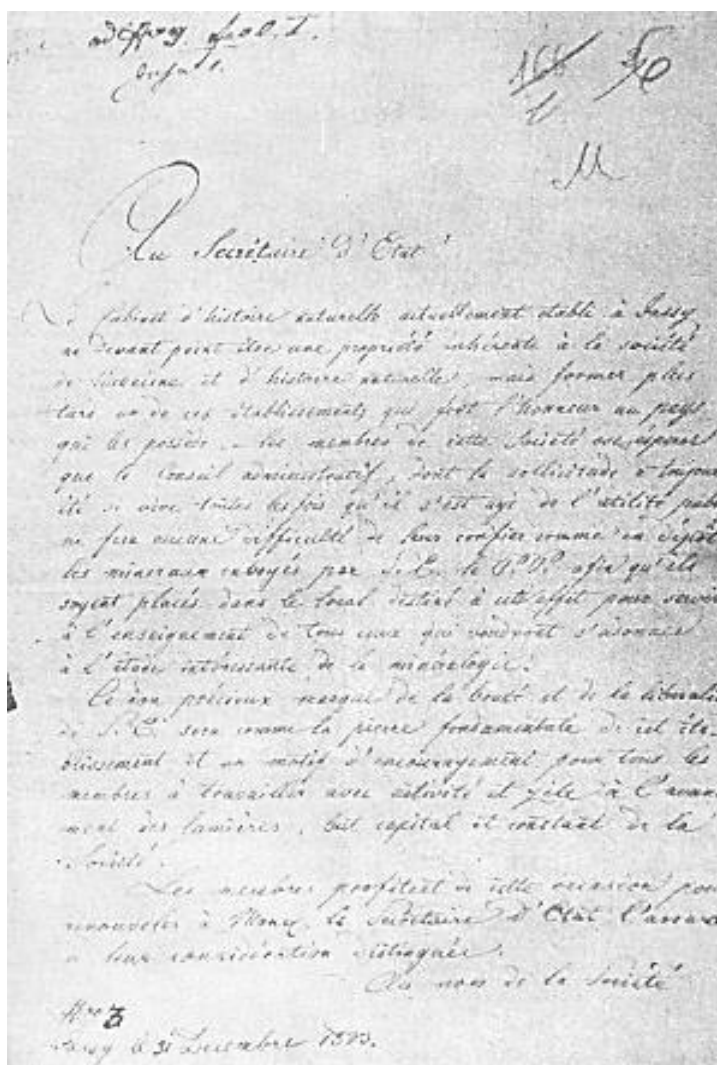 Au Secrétaire d'Etat
Le Cabinet d'histoire naturelle actuellement etabli à Jassy
ne devant point être une propriété inhérente à la société
de Médecine et d'histoire naturelle, mais former plus
tard un de ces établissements qui font l'honneur au pays
qui les possède. les membres de cette Société ose espérer
que le Conseil administratif, dont la sollicitude a toujours
été si vive toutes les fois qu'il s'est agi de l'utilité publ
ne fera aucune difficulté de leur confier comme en dépôt
les mineraux envoyés par S. E. le afin qu'ils
soyent placés dans le local destiné à cet effet pour servir
à l'enseignement de tous ceux qui voudront s'adonner
à l'étude intéressante de la minéralogie.
Ce don précieux marque de la bonté et de la libérali
de S. E. sera comme la pierre fondamentale de cet éta-
blissement et un motif d'encouragement pour tous les
membres à travailler avec activité et zèle à l'avan
ment des lumières, but capital et constant de la
Société.
Les membres profitent de cette occasion pour
renouveler à Monsr. le Secrétaire d'Etat l'assur
de leur considération distinguée.
Au nom de la Société
Nro 3
Jassy le 31 Decembre 1833.